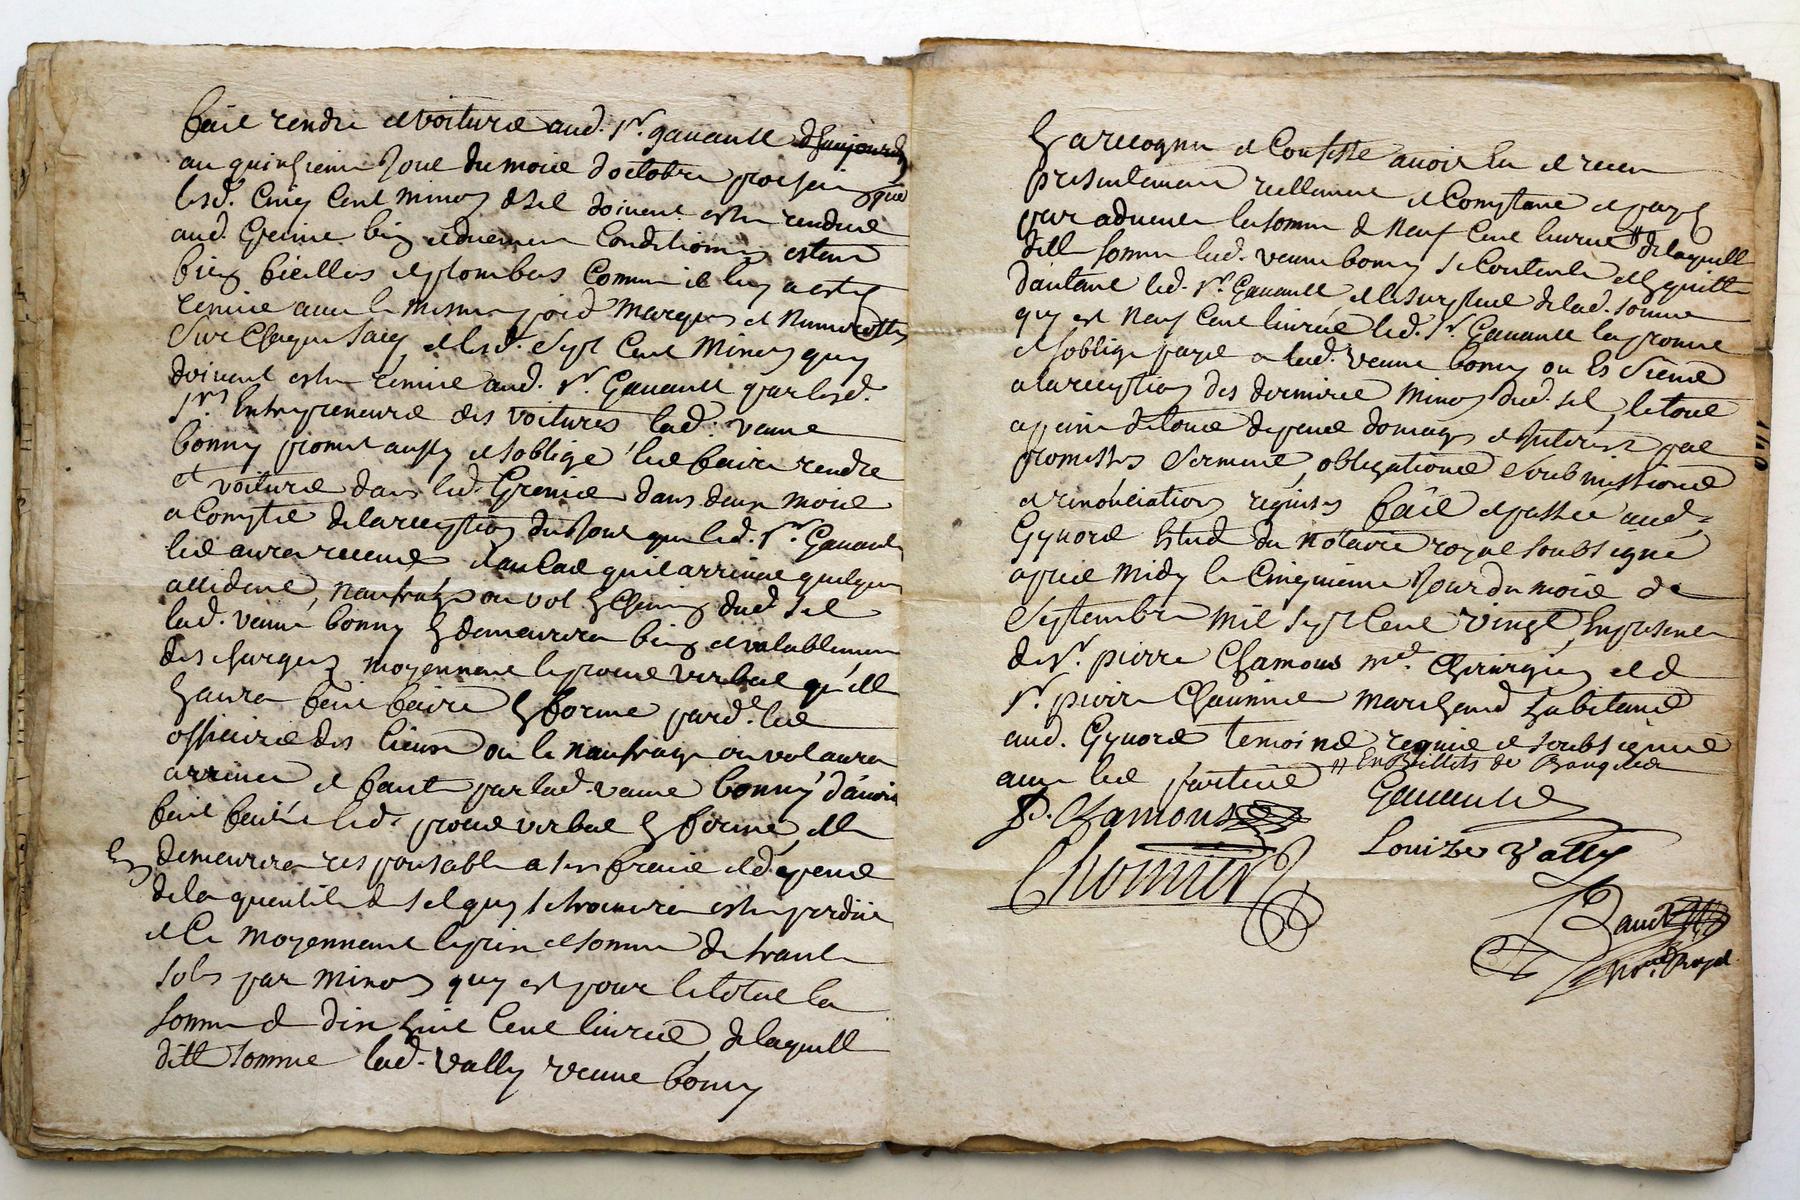 faire rendre et voiturer aud. Sr. gauault d'huy en jourd
au quinzieme Jour du mois d'octobre prochain que
lesd. Cinq Cent Minos de sel doiuent estre rendus
aud. Grenier bien et duement Conditionnes estant
bien fiscelles et plombes Comme il luy a esté
remis auec le mesme poid Marques et Numerottes
Sur Chaque Sacq et lesd. Sept Cent Minos quy
doiuent estre remis aud. Sr. Gauault par lesd.
Srs Entrepreneurs des voitures lad. veuue
bonny promet aussy et s'oblige les faire rendre
et voiturer dans led. Grenier dans deux mois
a Compter de la reception du Jour que led. Sr. Gauault
les aura receues et au Cas qu'il arriuat quelque
accident, naufrage ou vol En Chemin dud. Sel
lad. veuue bonny En demeurera bien et valablement
deschargée moyennant le proces verbal qu'elle
En aura fait faire En forme pard. les
officiers des lieux ou le naufrage ou vol aura
arriué et faute par lad. veuue bonny d'auoir
fait faire led. proces verbal En forme, elle
En demeurera responsable a ses frais et dépens
de la quantité de sel quy se trouuera estre perdüe
et Ce moyennant le prix et somme de trante
sols par minos quy est pour le total la
somme de dix huit Cent liures, de laquelle
ditte somme lad. Vally veuue bonny
En a recognu et Confessé auoir Eu et receu
presentement reellement et Comptant et payé
par aduance la somme de Neuf Cent liures // de laquelle
ditte somme lad. veuue bonny se Contente et En quitte
d'autant led. Sr. Gauault et le surplus de lad. somme
quy est Neuf Cent liures led. Sr. Gauault la promet
et s'oblige payer a lad. veuue bonny ou Es Siens
a la reception des derniers Minos dud. sel, le tout
a peine de tous depens domages et Interest par
promesses Serment, obligations Soubmissions
et renonciations requises fait et passée aud.
Gyuors Estude du notaire royal soubsigné
aprés Midy le Cinquieme Jour du mois de
Septembre Mil Sept Cent Vingt, En presence
de Sr. pierre Chamous Me. Chirurgien et de
Sr. pierre Chaunier Marchand habitans
aud. Gyuors temoins requis et soubsignes
auec les parties // En Billets de Banque
P. Chamous
Gauault
Louize Vally
Baud
Nore. Royal